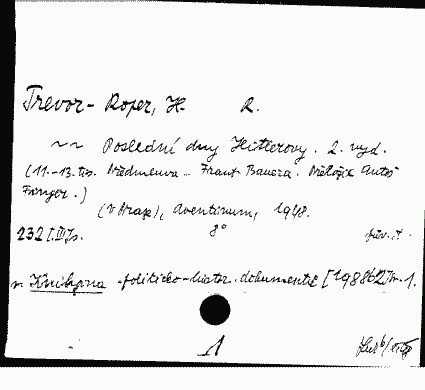 Trevor-Roper, H. R.
~~ Poslední dny Hitlerovy. 2. vyd.
(11.-13. tis. Předmluva Frant. Bauera. Přeložil Ant.
Finger.)
(V Praze), Aventinum, 1948.
232 [III] s. 8°
Knihovna politicko-histor. dokumentů
1